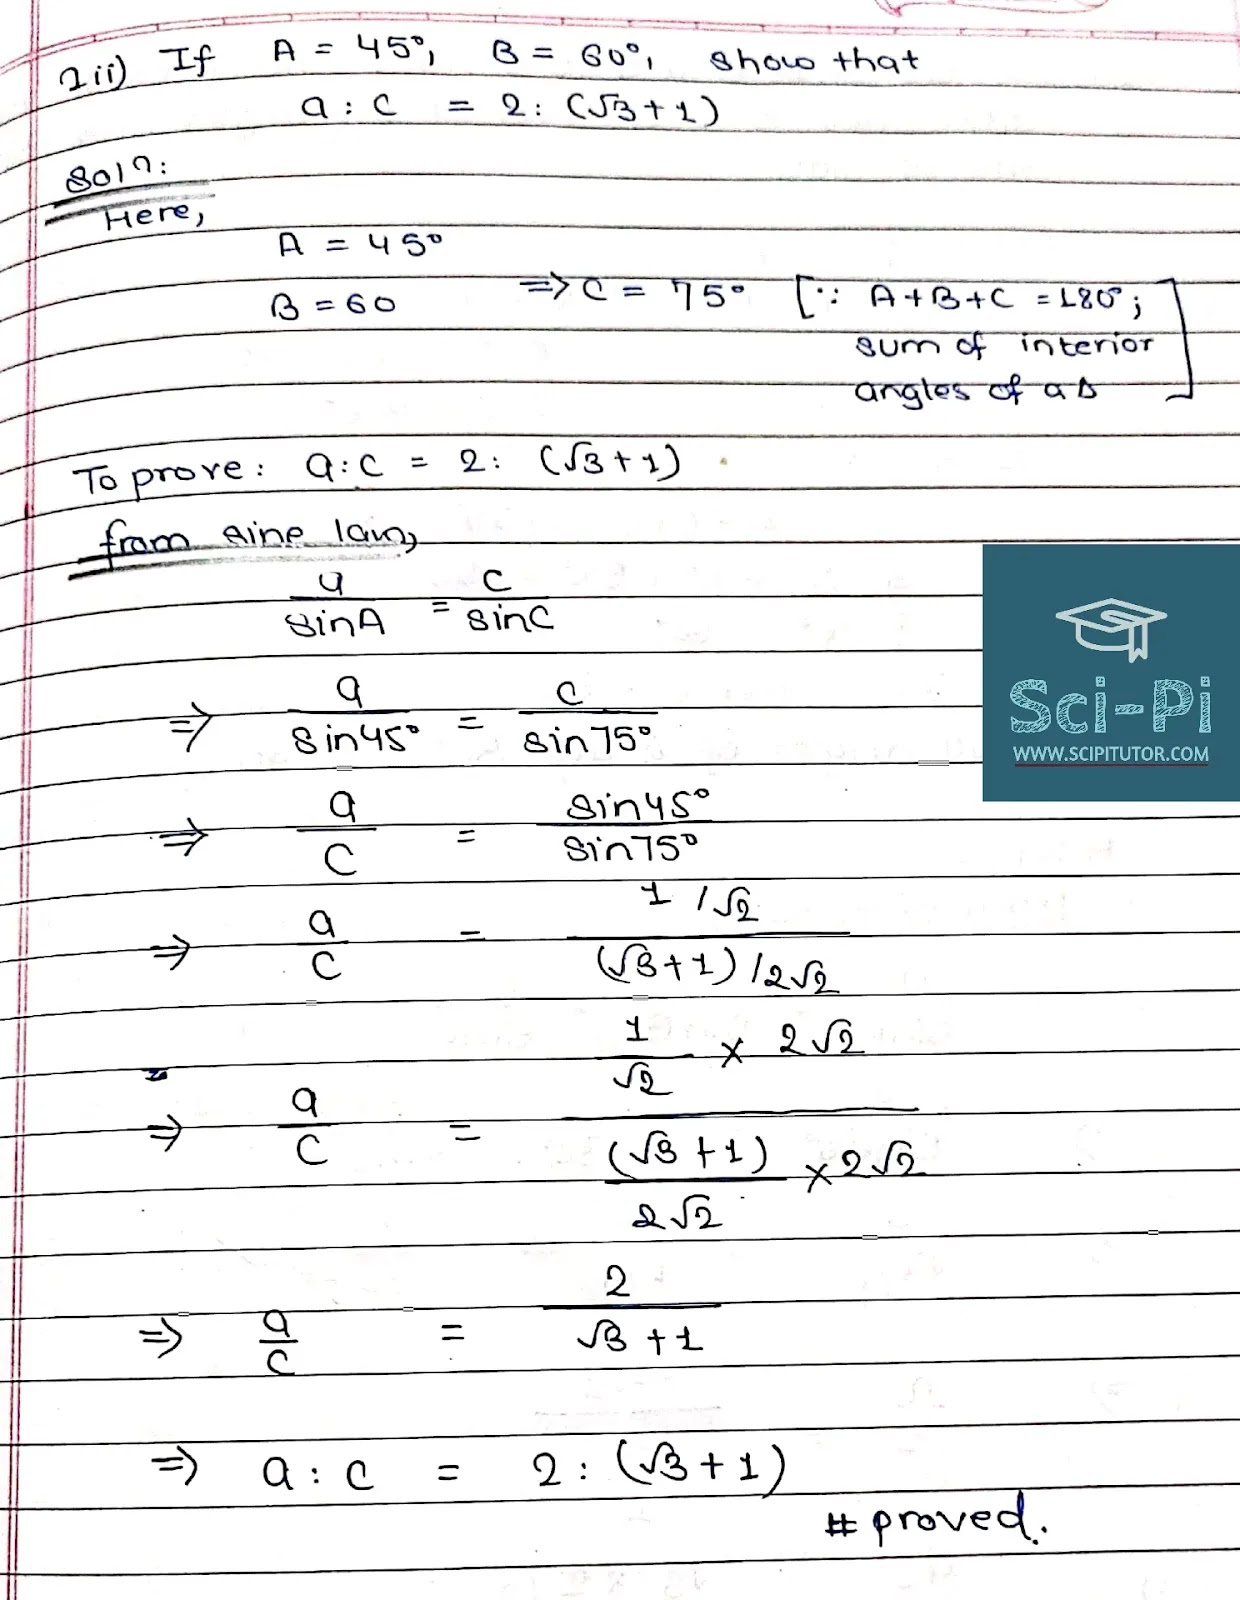 2ii) If A = 45°, B = 60°, show that
a : c = 2 : (√3+1)
Sol?:
Here,
A = 45°
B = 60 => C = 75° [∵ A+B+C = 180°;
sum of interior
angles of a Δ]
To prove: a:c = 2: (√3+1)
from sine law,
a/sinA = c/sinC
=> a/sin45° = c/sin75°
=> a/c = sin45°/sin75°
=> a/c = (1/√2)/((√3+1)/2√2)
=> a/c = (1/√2 × 2√2)/((√3+1)/2√2 × 2√2)
=> a/c = 2/(√3+1)
=> a : c = 2 : (√3+1)
# proved.
Sci-Pi
WWW.SCIPITUTOR.COM